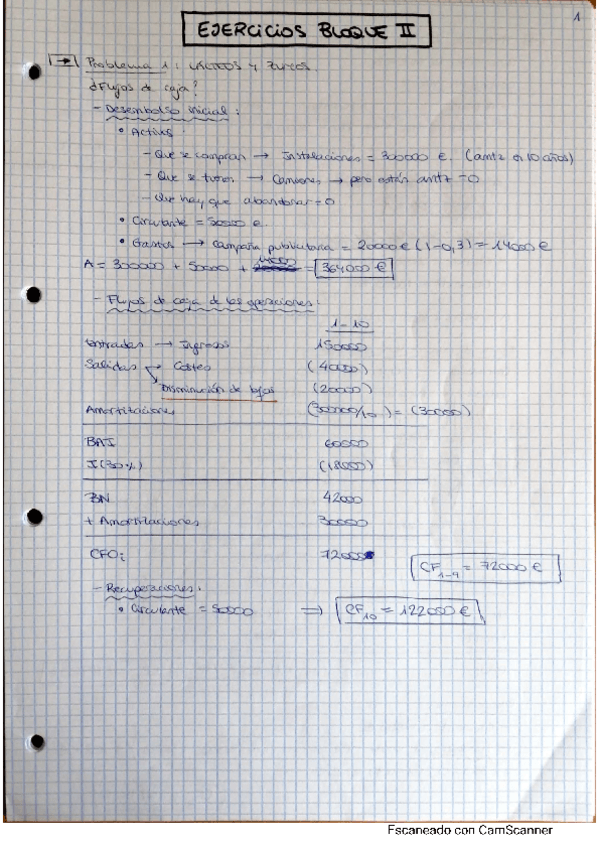 1
EJERCICIOS BLOQUE II
→ Problema 1: LÁCTEOS Y ZUMOS.
¿Flujos de caja?
- Desembolso inicial:
• Activos:
- Que se compran → Instalaciones = 300000 €. (amtz en 10 años)
- Que se tienen → Camiones → pero están amtz = 0
- Que hay que abandonar = 0
• Circulante = 50000 €.
• Gastos → Campaña publicitaria = 20000 € (1-0,3) = 14000 €
A = 300000 + 50000 + 14000 = 364000 €
- Flujos de caja de las operaciones:
1-10
Entradas → Ingresos 150000
Salidas → Costes (40000)
→ Disminución de (20000)
Amortizaciones (300000/10) = (30000)
BAI 60000
I (30%) (18000)
BN 42000
+ Amortizaciones 30000
CFOi 72000
CF1-9 = 72000 €
- Recuperaciones:
• Circulante = 50000 ⇒ CF10 = 122000 €
Escaneado con CamScanner